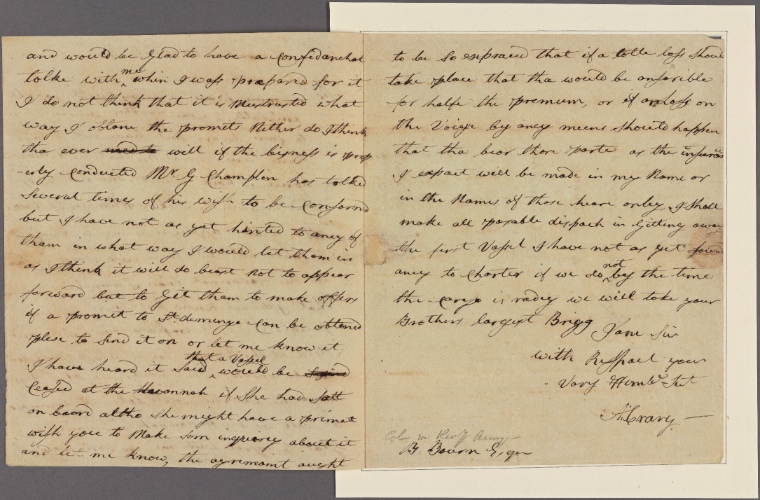 and would be Glad to have a Confedanchal
tolke with me when I wass prepared for it
I do not think that it is what
way I obtane the promits Nither do I think
tha ever used to will if the bisness is prop
erly Conducted Mr G Champlen has tolked
Several times of his wish to be Consarnd
but I have not as yet hinted to aney of
them in what way I would let them in
as I think it will do beast not to appear
forward but to Git them to make offers
if a promit to St domingo Can be obtaned
plese to Send it on or let me know it
I have heard it Said that a Vessel would be
Ceased at the Havannah if She had Salt
on board altho She might have a primit
wish you to Make Som inquary about it
and let me know, the agremant aught
to be So expraced that if a totle loss Should
take place that tha would be ansarible
for halfe the premium, or if a loss on
the Voige by aney meens Should happen
that tha bear thare parte as the insurance
I expact will be made in my Name or
in the Names of those hear onley. I Shall
make all posable dispach in Gitting away
the first Vassel I have not as yet found
aney to Charter if we do not by the time
the Cargo is radey we will take your
Brothers largist Brigg
I am Sir
with Respact your
Vary Humle Sert
A Crary
Colo in Revy Army
B Bourn Esqur